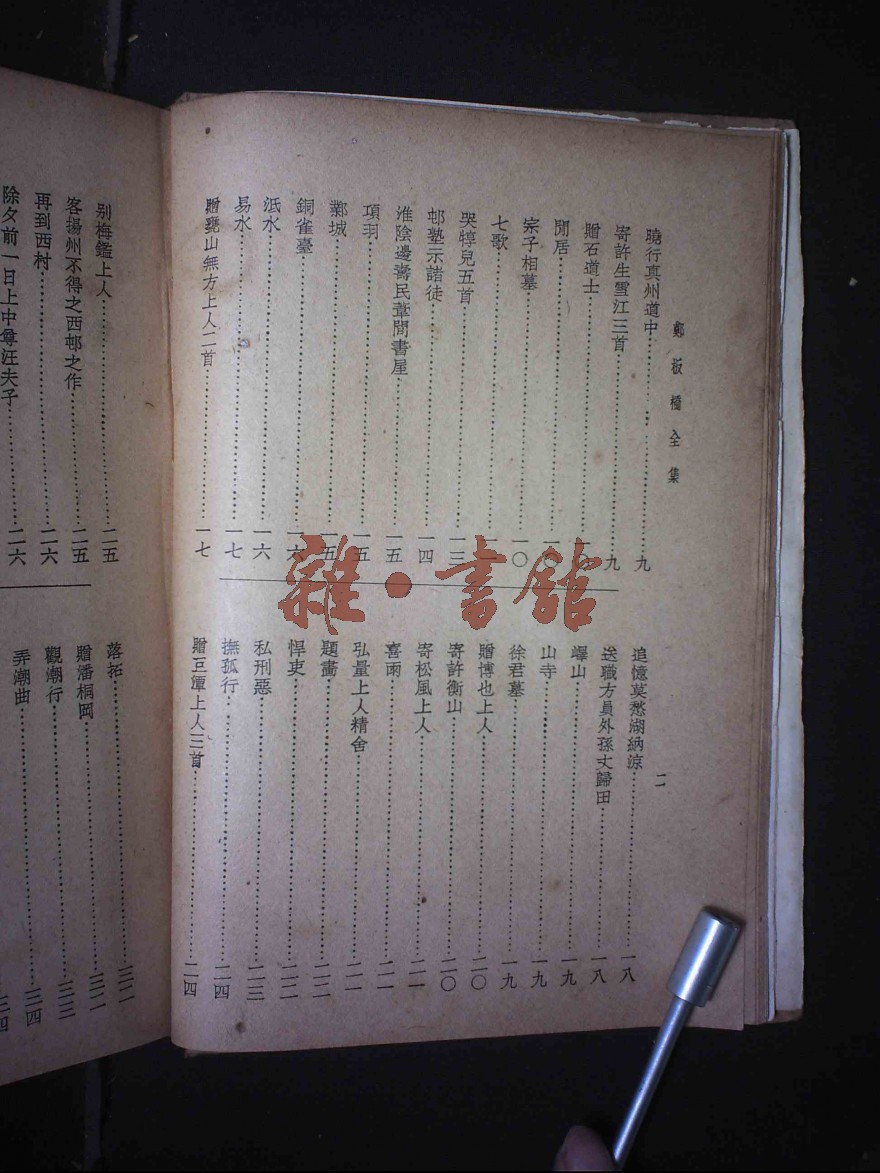 鄭板橋全集
二
曉行真州道中……九
寄許生雪江三首……九
贈石道士……一〇
閒居……一〇
宗子相墓……一〇
七歌……
哭犉兒五首……一三
邨塾示諸徒……一四
淮陰邊壽民葦間書屋……一五
項羽……一五
鄴城……一五
銅雀臺……一六
泜水……一六
易水……一七
贈甕山無方上人二首……一七
追憶莫愁湖納涼……一八
送職方員外孫丈歸田……一八
嶧山……一九
山寺……一九
徐君墓……一九
贈博也上人……二〇
寄許衡山……二〇
寄松風上人……二一
喜雨……二一
弘量上人精舍……二一
題畫……二二
悍吏……二二
私刑惡……二三
撫孤行……二四
贈巨潭上人三首……二四
別梅鑑上人……二五
客揚州不得之西邨之作……二五
再到西村……二六
除夕前一日上中尊汪夫子……二六
落拓……三二
贈潘桐岡……三二
觀潮行……三三
弄潮曲……三四
三四
雜·書館